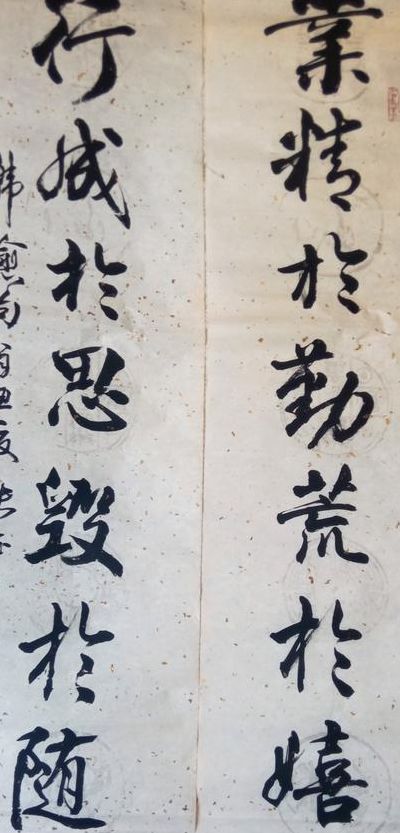 業精於勤荒於嬉
行成於思毀於随
韓愈句